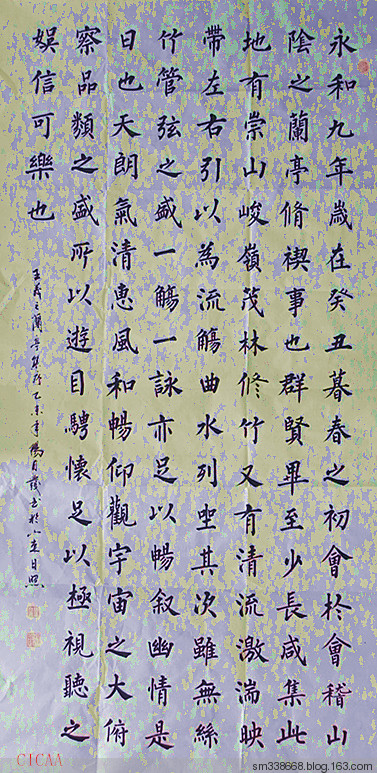 永和九年歲在癸丑暮春之初會於會稽山
陰之蘭亭脩禊事也群賢畢至少長咸集此
地有崇山峻嶺茂林修竹又有清流激湍映
帶左右引以為流觴曲水列坐其次雖無絲
竹管弦之盛一觴一詠亦足以暢叙幽情是
日也天朗氣清惠風和暢仰觀宇宙之大俯
察品類之盛所以遊目騁懷足以極視聽之
娛信可樂也
王羲之蘭亭集序乙未年書於山東日照
CICAA
sm338668.blog.163.com